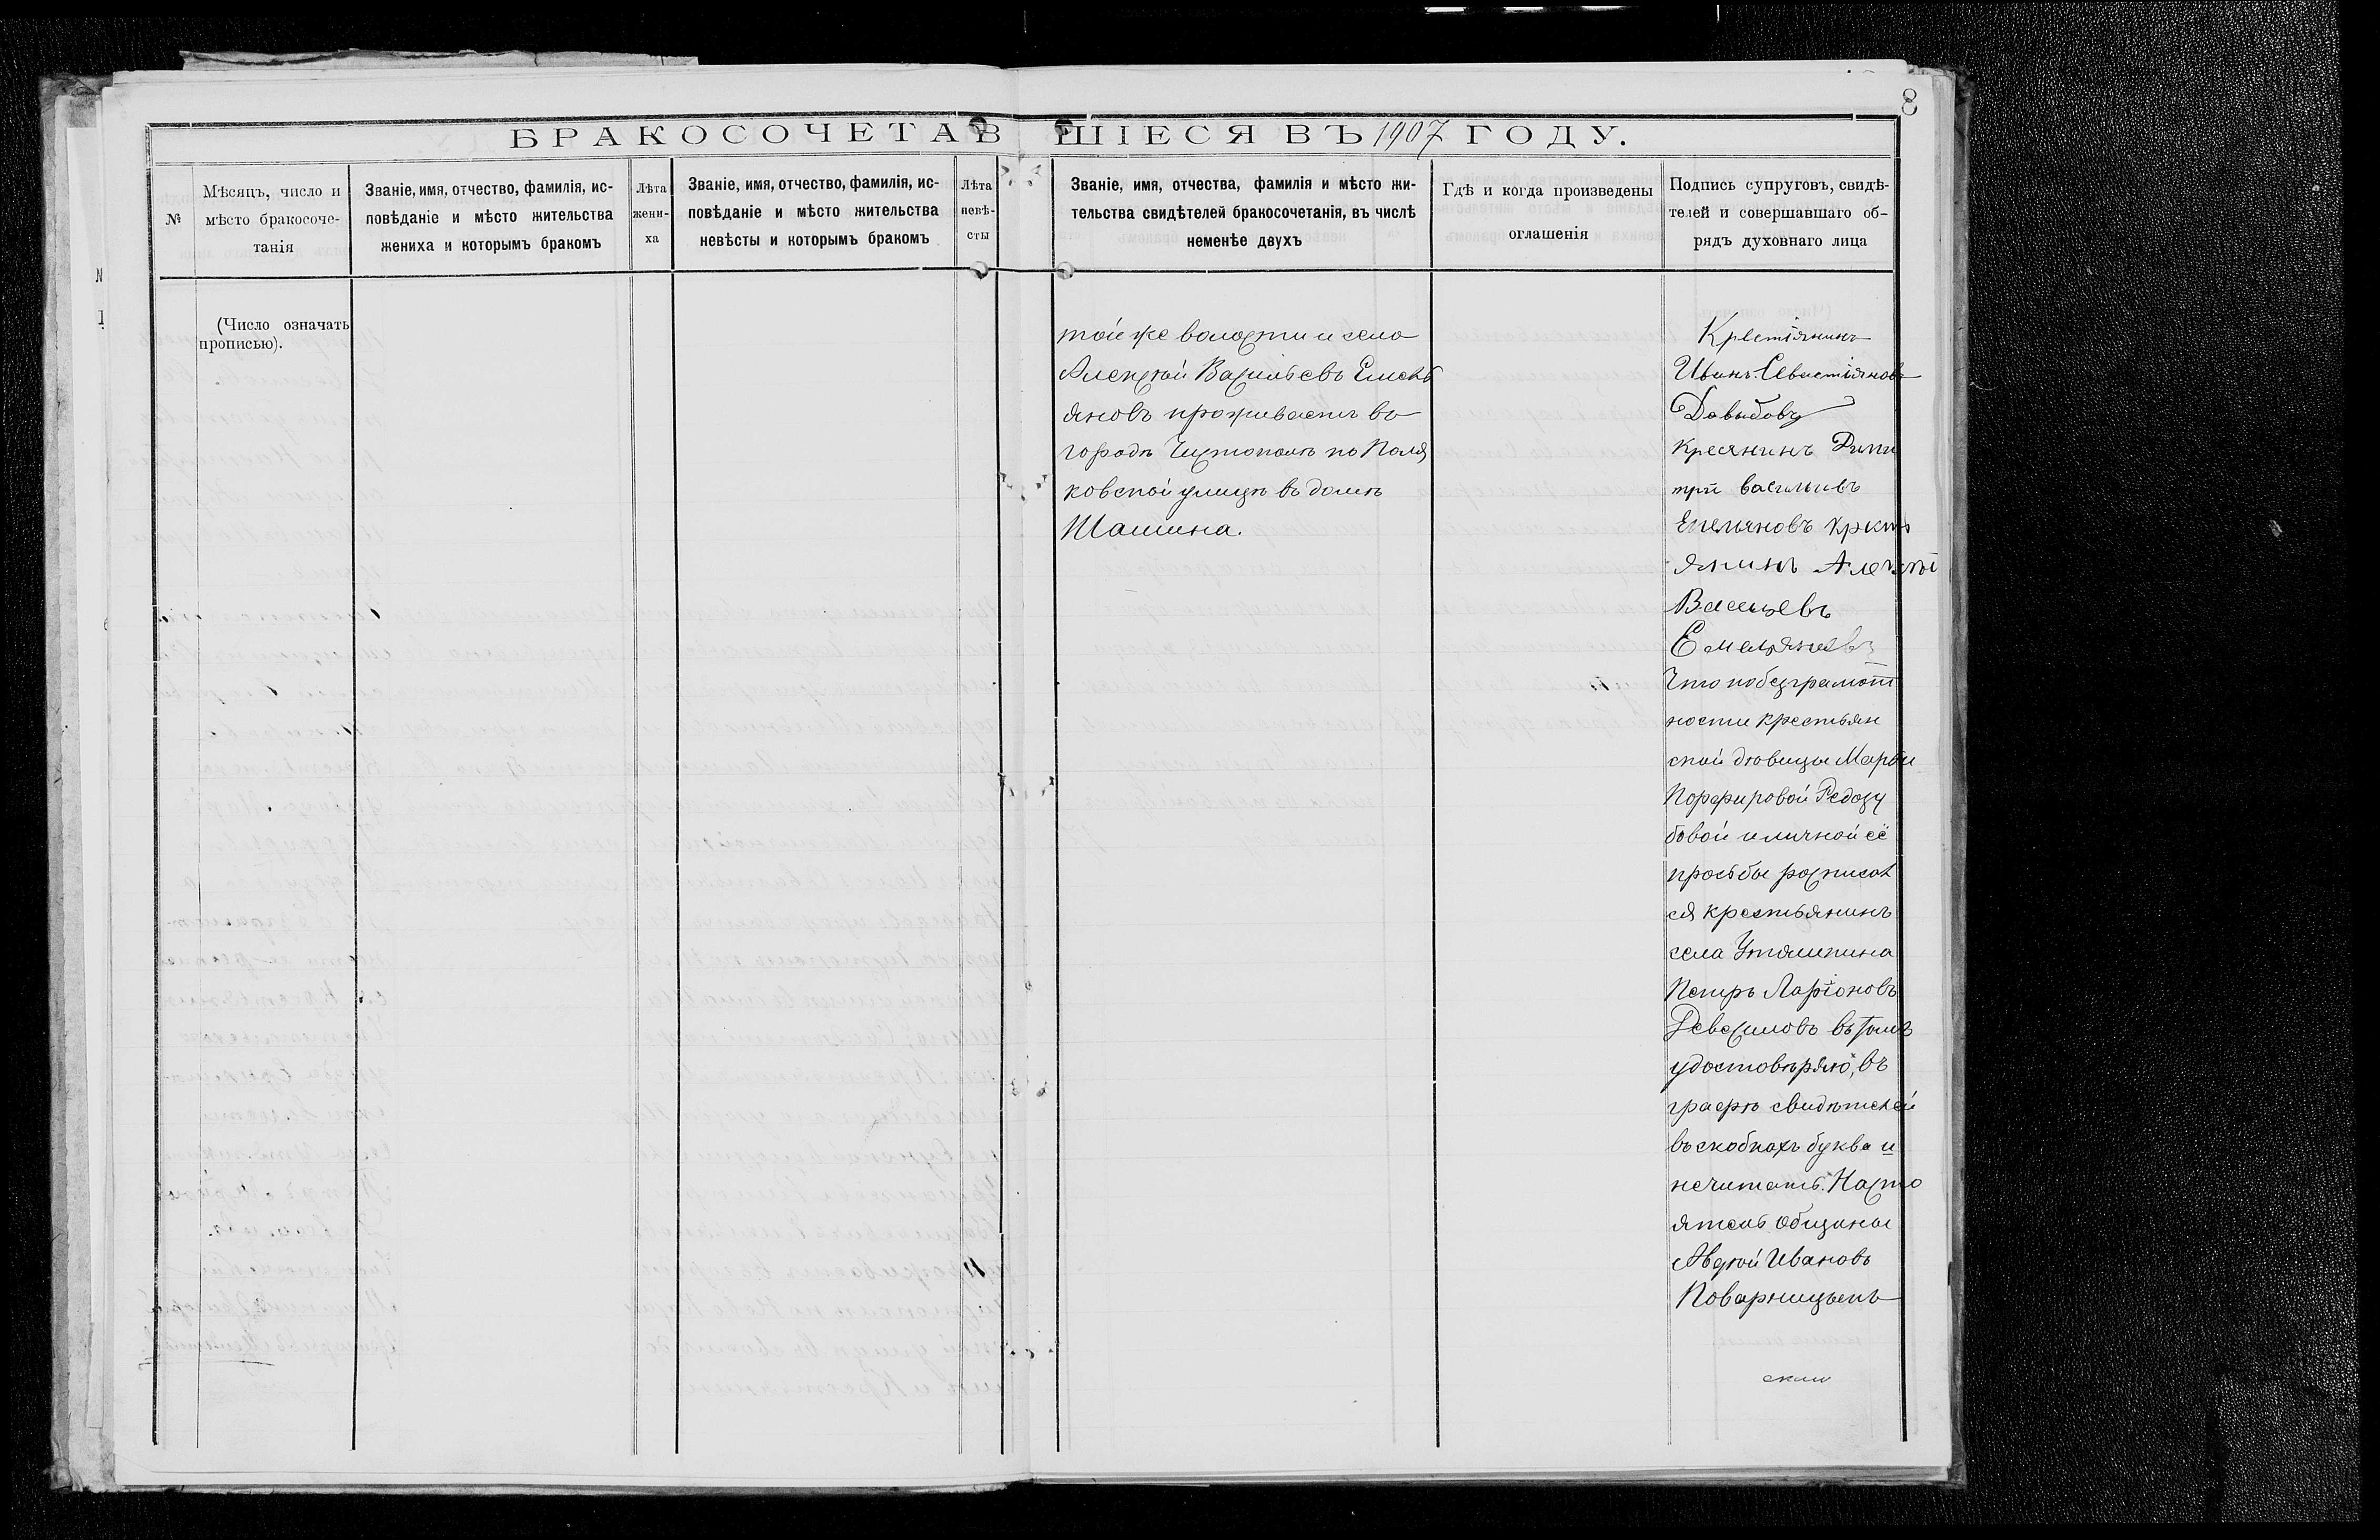 8
БРАКОСОЧЕТАВШІЕСЯ ВЪ 1907 ГОДУ.
№
Мѣсяцъ, число и
мѣсто бракосоче-
танія
Званіе, имя, отчество, фамилія, ис-
повѣданіе и мѣсто жительства
жениха и которымъ бракомъ
Лѣта
жени-
ха
Званіе, имя, отчество, фамилія, ис-
повѣданіе и мѣсто жительства
невѣсты и которымъ бракомъ
Лѣта
невѣ-
сты
Званіе, имя, отчества, фамилія и мѣсто жи-
тельства свидѣтелей бракосочетанія, въ числѣ
неменѣе двухъ
Гдѣ и когда произведены
оглашенія
Подпись супруговъ, свидѣ-
телей и совершавшаго об-
рядъ духовнаго лица
(Число означать
прописью).
той же волости и села
Алексѣй Васильевъ Емель
яновъ проживаетъ въ
городѣ Чистополѣ по Поля
ковской улицѣ въ домѣ
Шашина.
Крестіянинъ
Иванъ Севастіяновъ
Давыдовъ
Кресянинъ Дими
трй васильивъ
Емельяновъ Крист
янинъ Алексѣй
Васильевъ
Емельяновъ
Что по безграмот
ности крестьян
ской дѣвицы Марѳы
Порфировой Редозу
бовой и личной её
просьбы росписал
ся крестьянинъ
села Утяшкина
Петръ Ларіоновъ
Ревесиловъ въ томъ
удостовѣряю, въ
графѣ свидѣтелей
въ скобкахъ буква и
нечитать. Насто
ятель Общины
Авдѣй Ивановъ
Поварницынъ